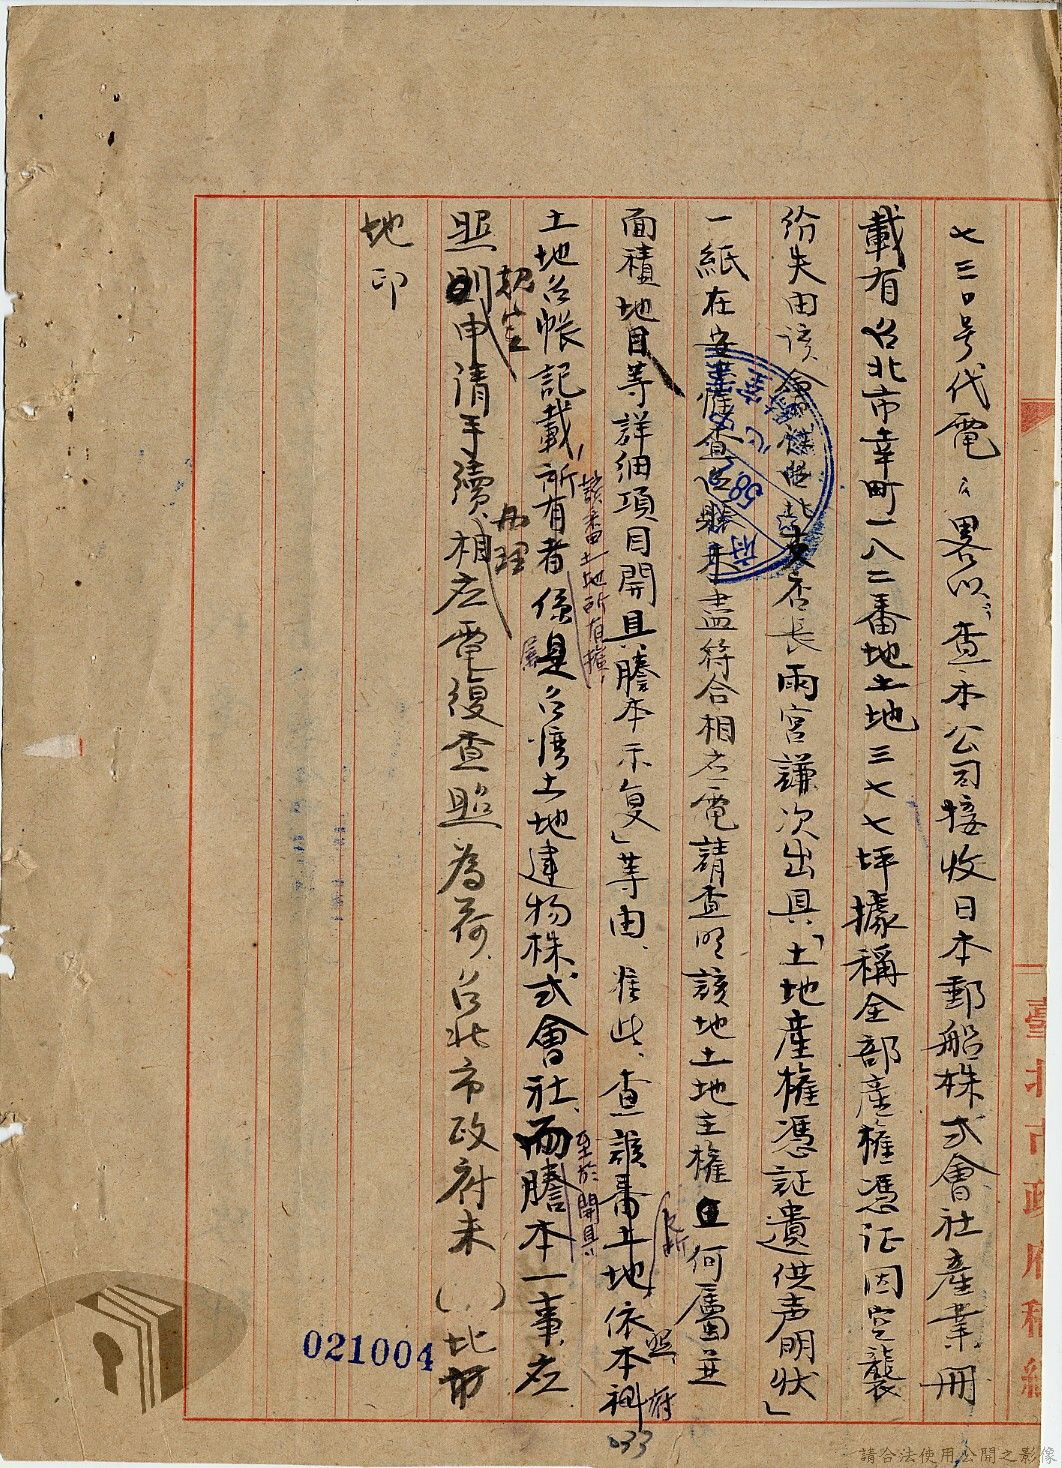 七三〇号代電：畧以：「查本公司接收日本郵船株式會社產業冊
載有台北市幸町一八二番地土地三七七坪據稱全部產權憑证因空襲
紛失由該會社台北支店長雨宮謙次出具「土地產權憑証遺供声明狀」
一紙在案惟查與賬未盡符合相应電請查明該地土地主權何屬並
面積地目等詳細項目開具謄本示复」等由、准此、查該番土地依本科
及所
照
府
土地台帳記載所有者係是台湾土地建物株式會社、而謄本一事应
該番土地所有權
屬
至於開具
照則申请手續、相应電復查照為荷、台北市政府未（ ）北市
規定
办理
地印
臺北市政府稿紙
021004
請合法使用公開之影像